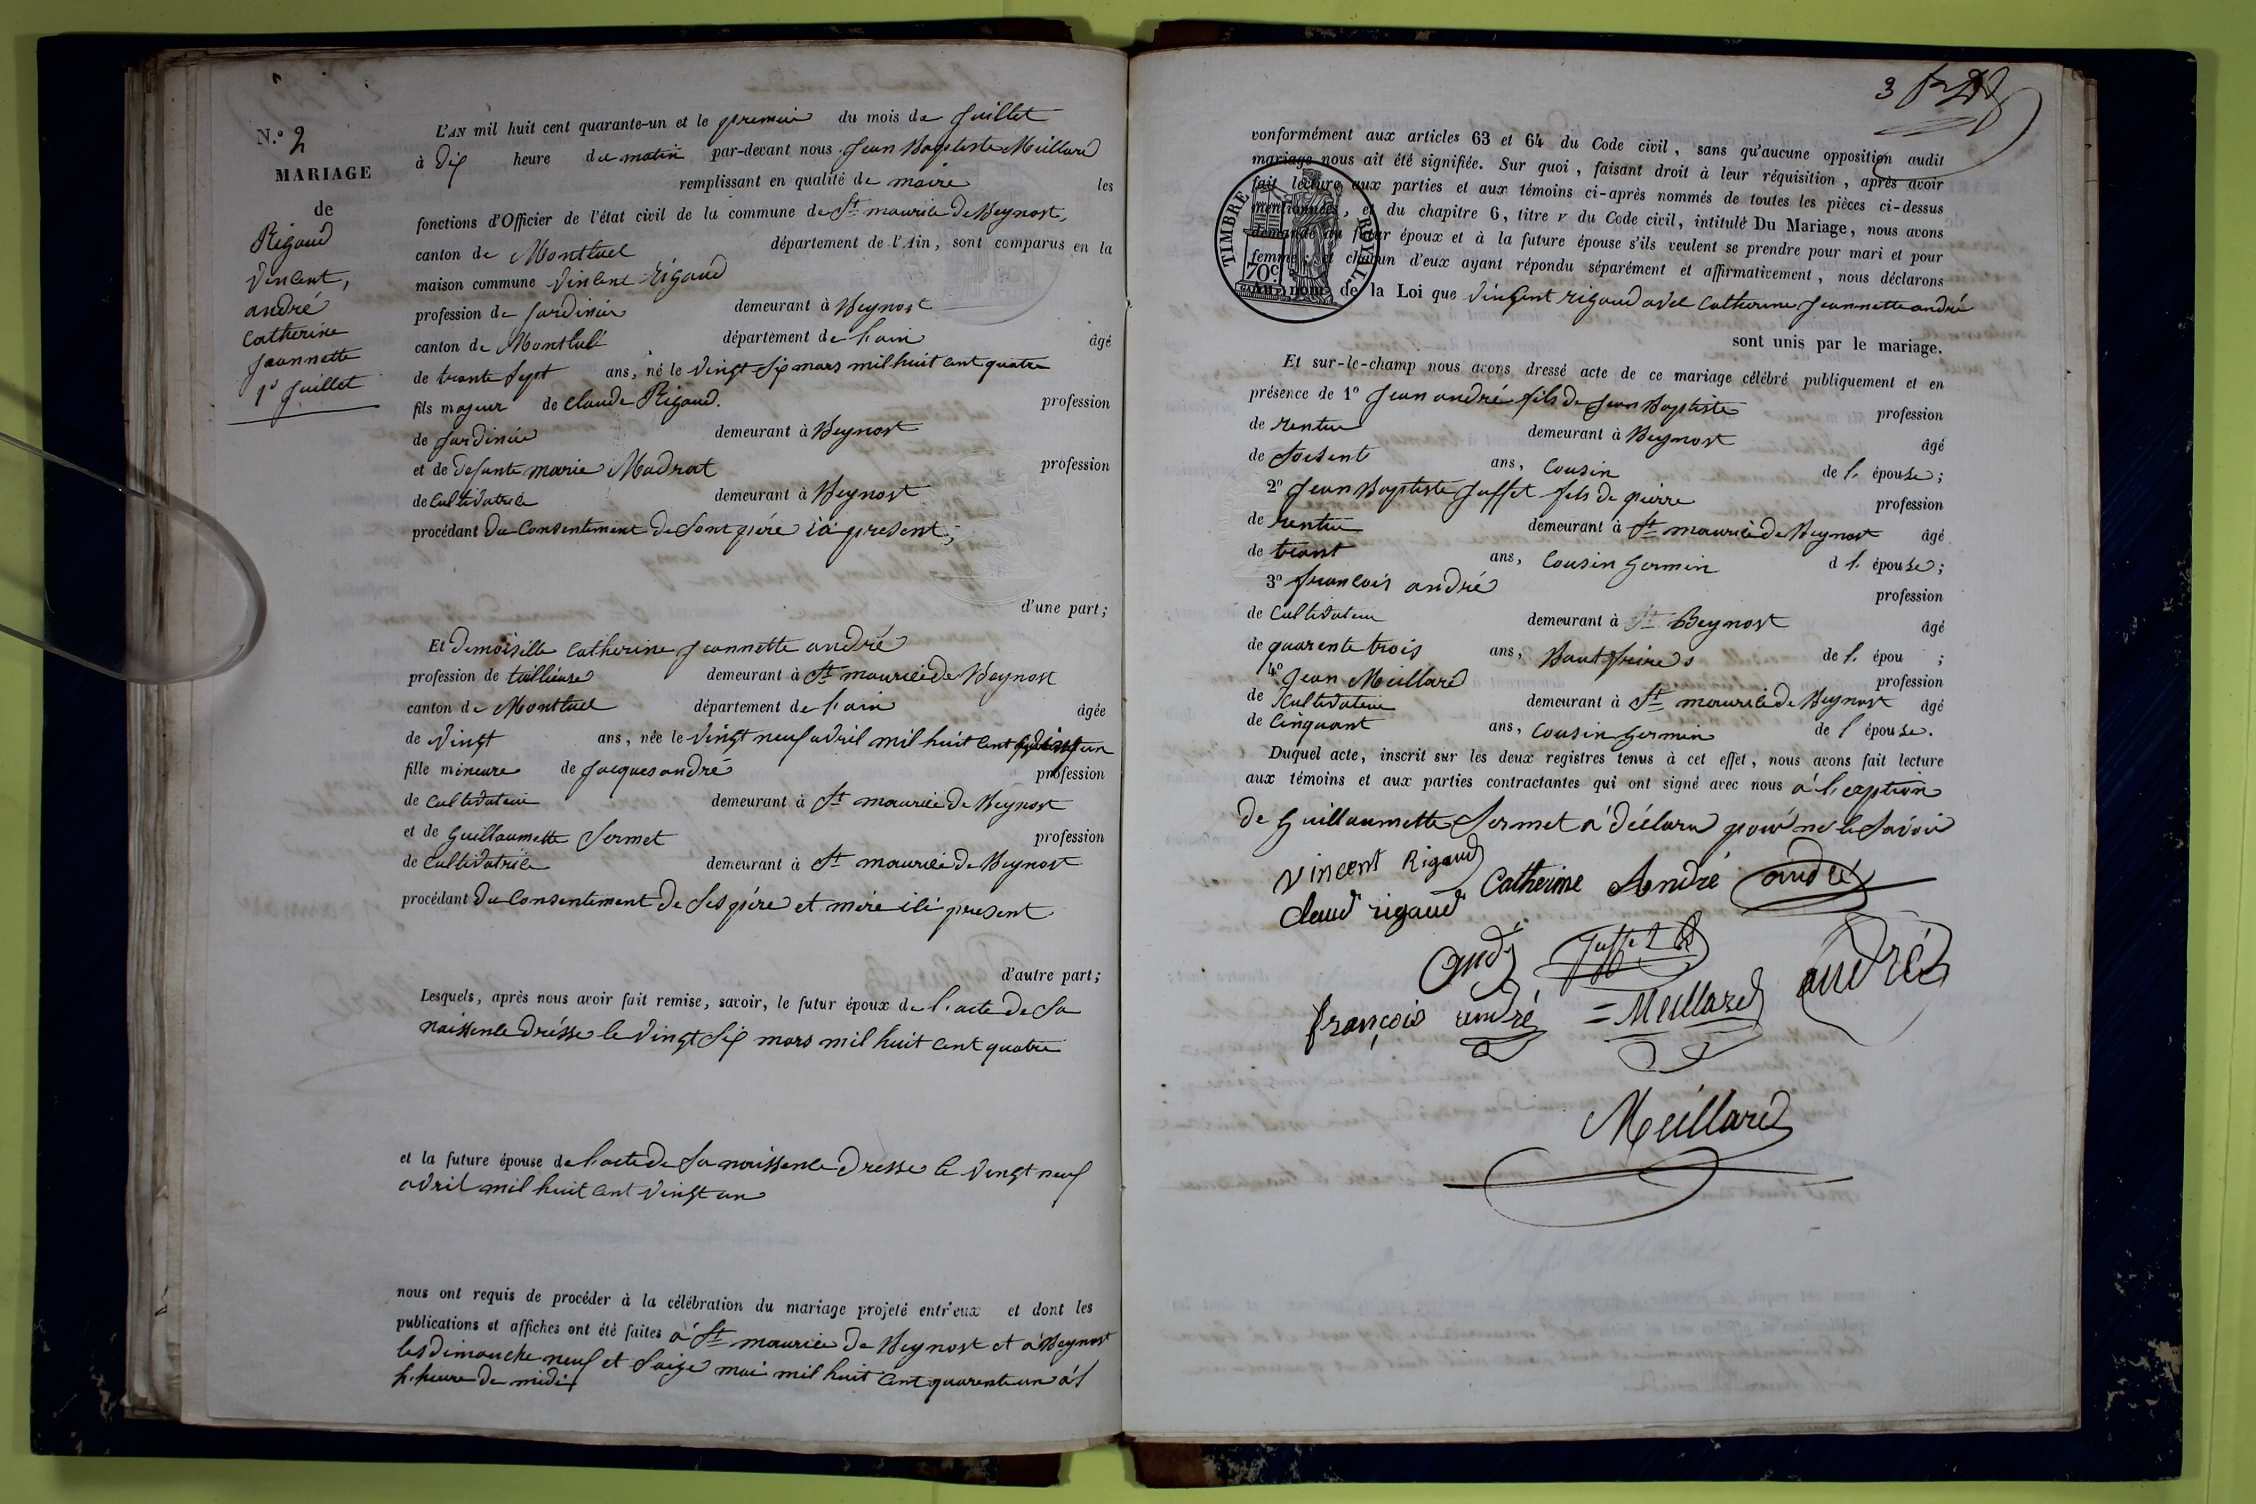 N.º 2
MARIAGE
de
Rigaud
Vincent,
andré
Catherine
Jeannette
1er Juillet
L'AN mil huit cent quarante-un et le premier du mois de Juillet
à dix heure du matin par-devant nous Jean Baptiste Meillard
remplissant en qualité de maire les
fonctions d'Officier de l'état civil de la commune de St maurice de Beynost,
canton de Montluel département de l'Ain, sont comparus en la
maison commune Vincent Rigaud
profession de Jardinier demeurant à Beynost
canton de Montluel département de l'ain âgé
de trante sept ans, né le vingt six mars mil huit cent quatre
fils majeur de Claude Rigaud. profession
de Jardinier demeurant à Beynost
et de defunte marie Madrat profession
de Cultivatrice demeurant à Beynost
procédant du Consentement de Sont père ici present;
d'une part;
Et demoiselle Catherine Jeannette andré
profession de taillieuse demeurant à St mauricide Beynost
canton de Montluel département de l'ain âgée
de vingt ans, née le vingt neuf avril mil huit cent vingt un
fille mineure de Jacques andré profession
de Cultivateur demeurant à St maurice de Beynost
et de Guillaumette Sermet profession
de Cultivatrice demeurant à St maurice de Beynost
procédant du Consentement de Ses père et mère ici present
d'autre part;
Lesquels, après nous avoir fait remise, savoir, le futur époux de l'acte de Sa
naissence drésse le vingt Six mars mil huit cent quatre
et la future épouse de l'acte de Sa naissence dresse le vingt neuf
avril mil huit cent vingt un
nous ont requis de procéder à la célébration du mariage projeté entr'eux et dont les
publications et affiches ont été faites à St maurice de Beynost et à Beynost
les dimanche neuf et Saize mai mil huit cent quarente un à l
h. heure de midi
3
conformément aux articles 63 et 64 du Code civil, sans qu'aucune opposition audit
mariage nous ait été signifiée. Sur quoi, faisant droit à leur réquisition, après avoir
fait lecture aux parties et aux témoins ci-après nommés de toutes les pièces ci-dessus
mentionnées, et du chapitre 6, titre v du Code civil, intitulé Du Mariage, nous avons
demandé au futur époux et à la future épouse s'ils veulent se prendre pour mari et pour
femme; et chacun d'eux ayant répondu séparément et affirmativement, nous déclarons
au nom de la Loi que Vincent rigaud avec Catherine Jeannette andré
TIMBRE ROYAL
70c
sont unis par le mariage.
Et sur-le-champ nous avons dressé acte de ce mariage célébré publiquement et en
présence de 1º Jean andré fils de Jean Baptiste profession
de rentier demeurant à Beynost âgé
de Soisente ans, Cousin de l. épouse;
2º Jean Baptiste Juffet fils de pierre profession
de rentier demeurant à St maurice de Beynost âgé
de trant ans, Cousin Germin d l. épouse;
3º francois andré profession
de Cultivateur demeurant à St Beynost âgé
de quarente trois ans, Baut frére s de l. épou ;
4º Jean Meillard profession
de Cultivateur demeurant à St maurice de Beynost âgé
de Cinquant ans, Cousin Germin de l épouse.
Duquel acte, inscrit sur les deux registres tenus à cet effet, nous avons fait lecture
aux témoins et aux parties contractantes qui ont signé avec nous à l'exption
de Guillaumette Sermet a déclaré pour ne le Savoir
Vincent Rigaud Catherine André andré
Claud rigaud
André Juffet andré
françois andré = Meillard
Meillard